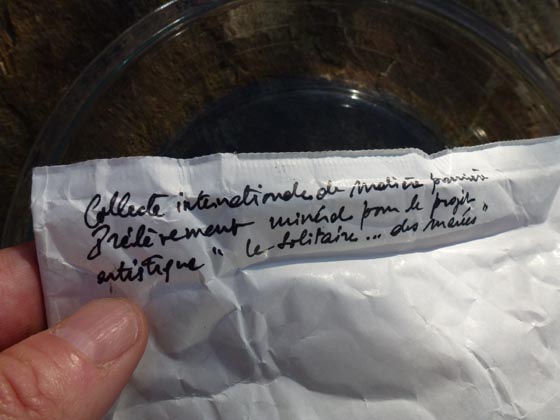 Collecte internationale de matière première
Prélèvement minéral pour le projet
artistique " le solitaire... des marées "